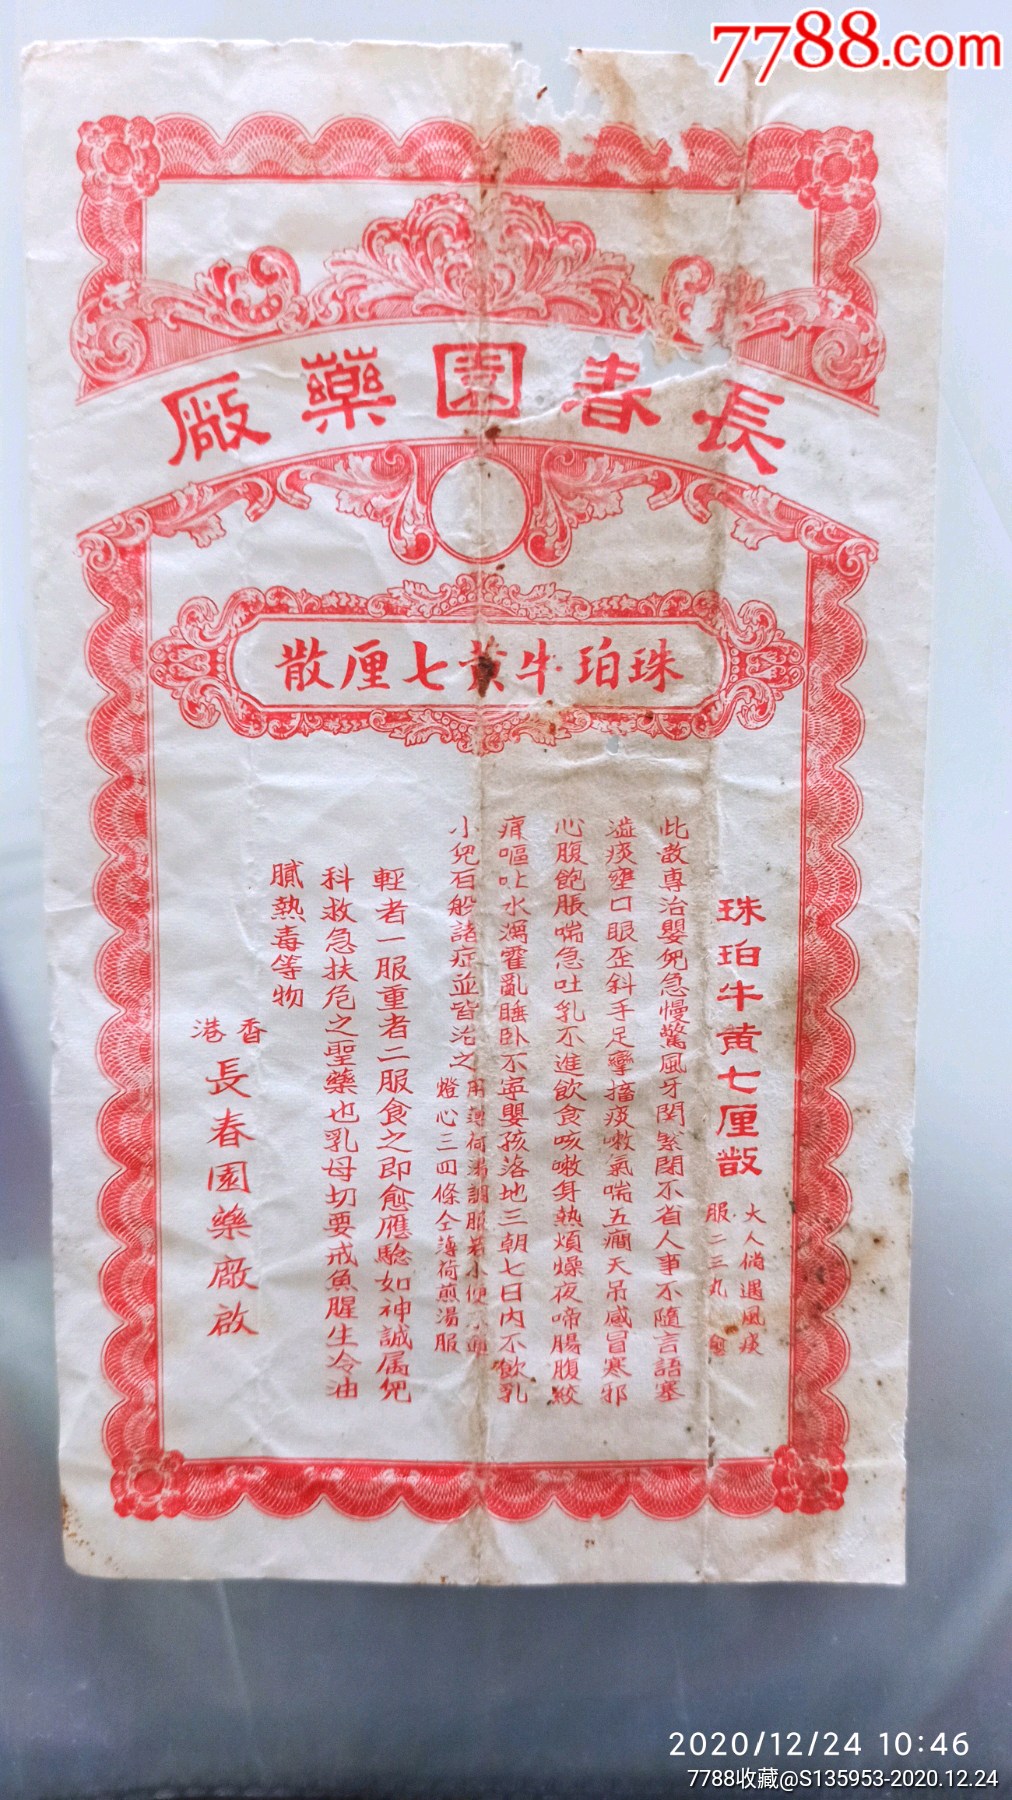 7788.com
長春園藥廠
珠珀牛黃七厘散
珠珀牛黃七厘散
大人倘遇風痰
服二三丸 愈
此散專治嬰兒急慢驚風牙関緊閉不省人事不隨言語蹇
澁痰壅口眼歪斜手足攣搐痰嗽氣喘五癇天吊感冒寒邪
心腹飽脹喘急吐乳不進飲食咳嗽身熱煩燥夜啼腸腹絞
痛嘔吐水瀉霍亂睡卧不寧嬰孩落地三朝七日内不飲乳
小兒百般諸症並皆治之
用薄荷湯調服若小便不通
燈心三四條仝薄荷煎湯服
輕者一服重者二服食之即愈應驗如神誠属兒
科救急扶危之聖藥也乳母切要戒魚腥生冷油
膩熱毒等物
香港
長春園藥廠啟
2020/12/24 10:46
7788收藏@S135953-2020.12.24